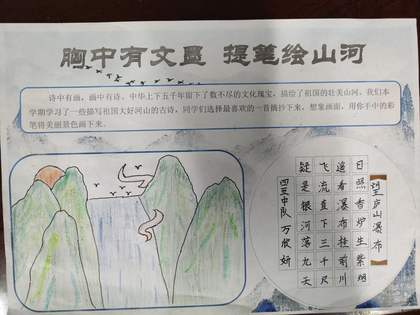 胸中有文墨 提笔绘山河
诗中有画，画中有诗。中华上下五千年留下了数不尽的文化瑰宝，描绘了祖国的壮美山河。我们本
学期学习了一些描写祖国大好河山的古诗，同学们选择最喜欢的一首摘抄下来，想象画面，用你手中的彩
笔将美丽景色画下来。
望庐山瀑布
日照香炉生紫烟
遥看瀑布挂前川
飞流直下三千尺
疑是银河落九天
四三中队 万欣妍